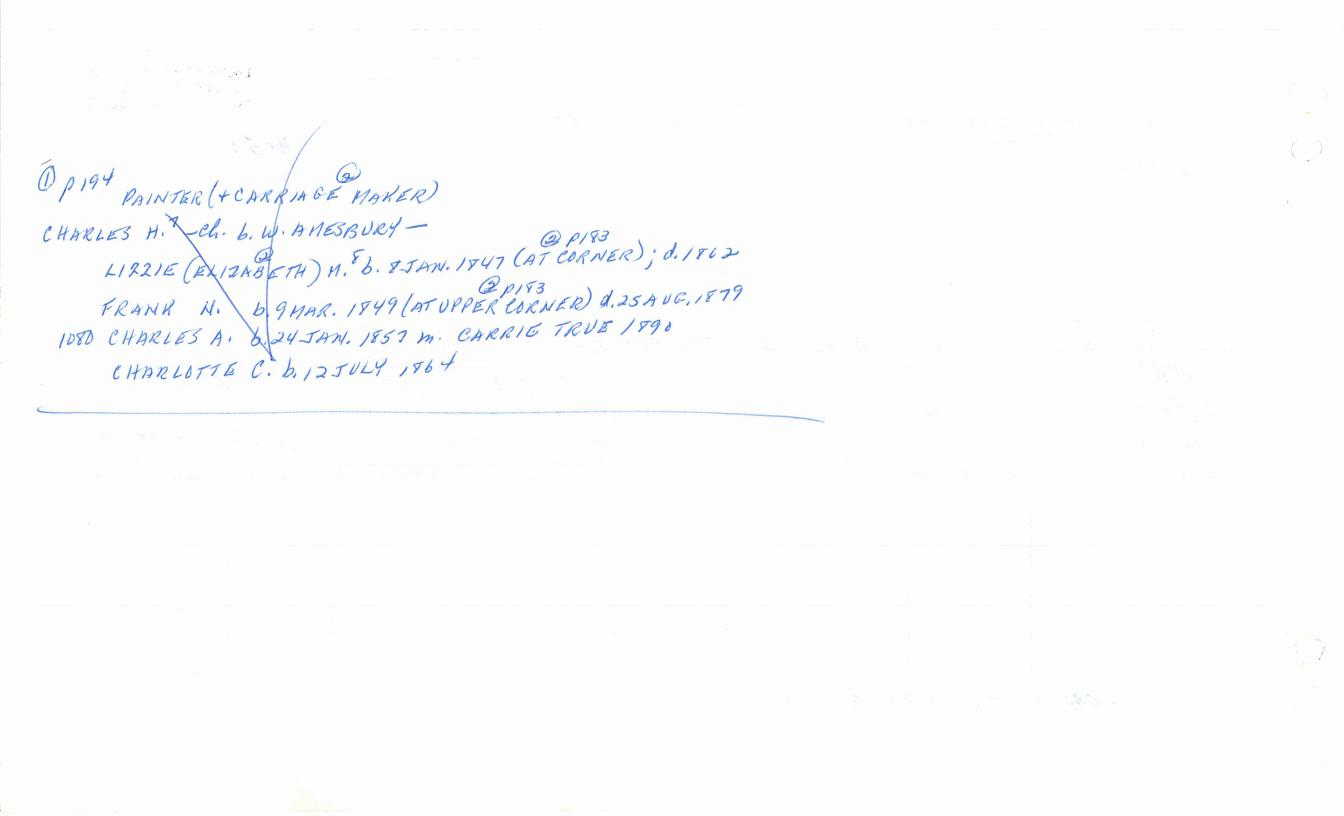 ① p194 PAINTER (+ CARRIAGE ② MAKER)
CHARLES H.⁷ – ch. b. W. AMESBURY –
LIZZIE (ELIZABETH) ② M.⁸ b. 8 JAN. 1847 (AT CORNER) ② p183; d. 1862
FRANK N. b. 9 MAR. 1849 (AT UPPER CORNER) ② p183 d. 25 AUG. 1879
1080 CHARLES A. b. 24 JAN. 1857 m. CARRIE TRUE 1890
CHARLOTTE C. b. 12 JULY 1864